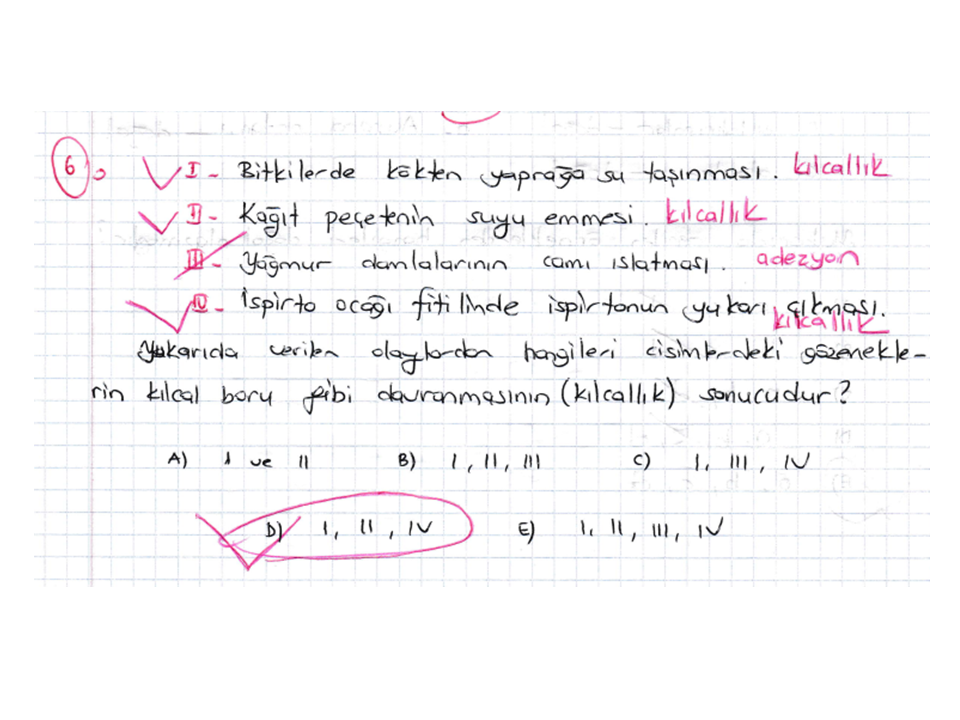 6) I - Bitkilerde kökten yaprağa su taşınması. kılcallık
II - Kağıt peçetenin suyu emmesi. kılcallık
III - Yağmur damlalarının camı ıslatması. adezyon
IV - İspirto ocağı fitilinde ispirtonun yukarı çıkması. kılcallık
Yukarıda verilen olaylardan hangileri cisimlerdeki gözenekle-
rin kılcal boru gibi davranmasının (kılcallık) sonucudur?
A) I ve II B) I, II, III C) I, III, IV
D) I, II, IV E) I, II, III, IV